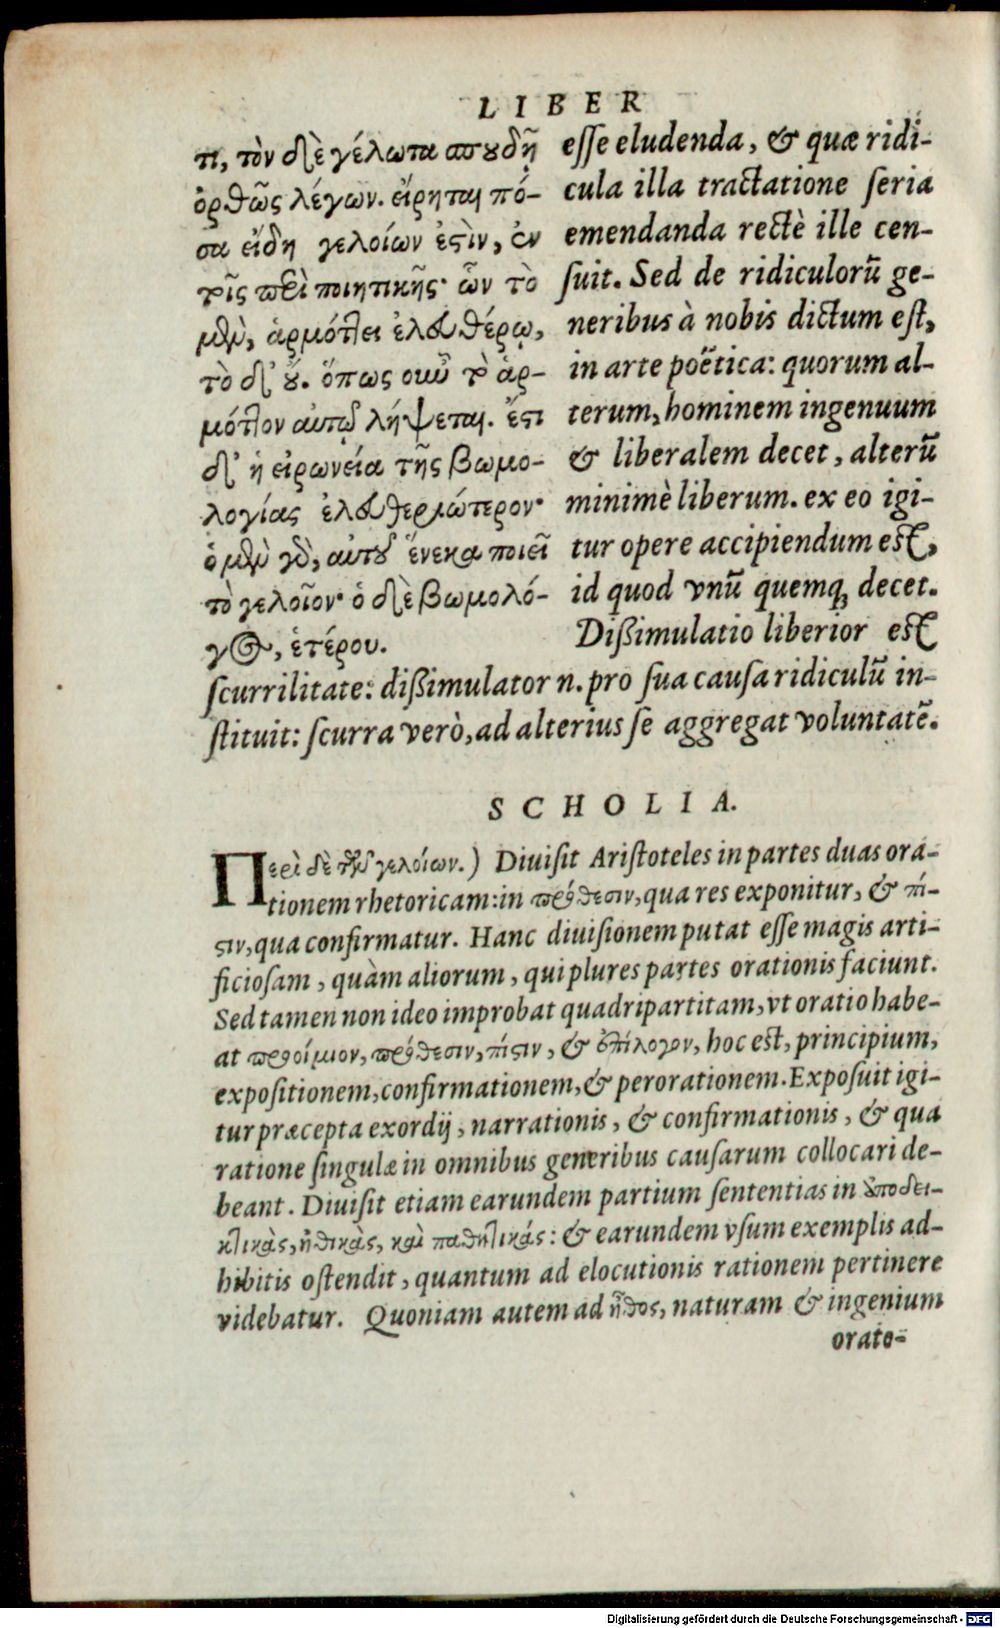 LIBER
τι, τὸν δὲ γέλωτα σπουδῇ
ὀρθῶς λέγων. εἴρηται πό-
σα εἴδη γελοίων ἐστὶν, ἐν
τοῖς περὶ ποιητικῆς· ὧν τὸ
μὲν, ἁρμόττει ἐλευθέρῳ,
τὸ δ' οὔ. ὅπως οὖν τὸ ἁρ-
μόττον αὐτῷ λήψεται. ἔστι
δ' ἡ εἰρωνεία τῆς βωμο-
λογίας ἐλευθεριώτερον·
ὁ μὲν γὰρ, αὑτοῦ ἕνεκα ποιεῖ
τὸ γελοῖον· ὁ δὲ βωμολό-
γος, ἑτέρου.
esse eludenda, & quæ ridi-
cula illa tractatione seria
emendanda rectè ille cen-
suit. Sed de ridiculorū ge-
neribus à nobis dictum est,
in arte poëtica: quorum al-
terum, hominem ingenuum
& liberalem decet, alterū
minimè liberum. ex eo igi-
tur opere accipiendum est,
id quod vnū quemq; decet.
Dißimulatio liberior est
scurrilitate: dißimulator n. pro sua causa ridiculū in-
stituit: scurra verò, ad alterius se aggregat voluntatē.
SCHOLIA.
Περὶ δὲ τῶν γελοίων.) Diuisit Aristoteles in partes duas ora-
tionem rhetoricam: in πρόθεσιν, qua res exponitur, & πί-
στιν, qua confirmatur. Hanc diuisionem putat esse magis arti-
ficiosam, quàm aliorum, qui plures partes orationis faciunt.
Sed tamen non ideo improbat quadripartitam, vt oratio habe-
at προοίμιον, πρόθεσιν, πίστιν, & ἐπίλογον, hoc est, principium,
expositionem, confirmationem, & perorationem. Exposuit igi-
tur præcepta exordij, narrationis, & confirmationis, & qua
ratione singulæ in omnibus generibus causarum collocari de-
beant. Diuisit etiam earundem partium sententias in ἀποδει-
κτικὰς, ἠθικὰς, καὶ παθητικάς: & earundem vsum exemplis ad-
hibitis ostendit, quantum ad elocutionis rationem pertinere
videbatur. Quoniam autem ad ἦθος, naturam & ingenium
orato-
Digitalisierung gefördert durch die Deutsche Forschungsgemeinschaft - DFG